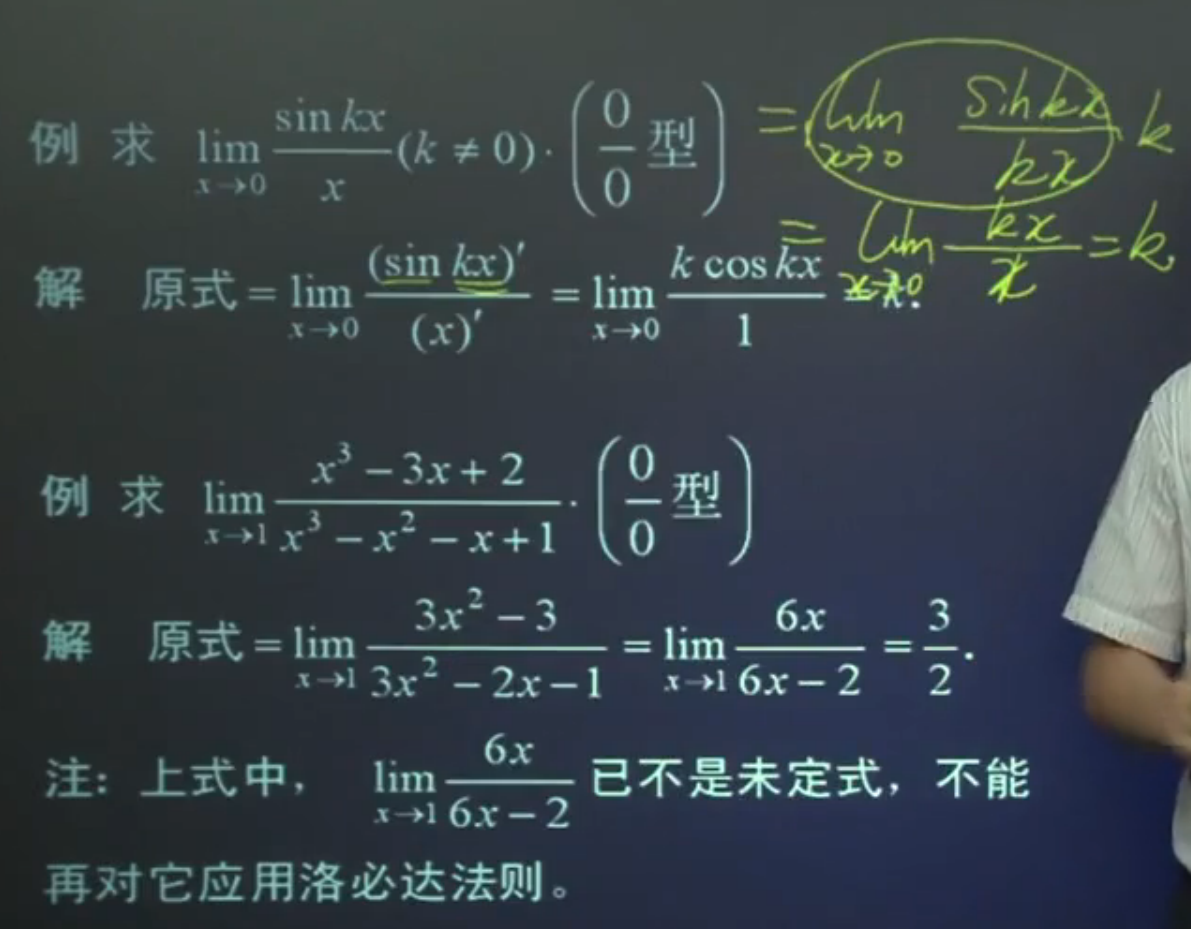 例 求 lim_{x→0} \frac{sin kx}{x} (k ≠ 0)· (\frac{0}{0} 型) = lim_{x→0} \frac{sin kx}{kx} · k
= lim_{x→0} \frac{kx}{x} = k.
解 原式 = lim_{x→0} \frac{(sin kx)′}{(x)′} = lim_{x→0} \frac{k cos kx}{1}
例 求 lim_{x→1} \frac{x³ − 3x + 2}{x³ − x² − x + 1}· (\frac{0}{0} 型)
解 原式 = lim_{x→1} \frac{3x² − 3}{3x² − 2x − 1} = lim_{x→1} \frac{6x}{6x − 2} = \frac{3}{2}.
注：上式中， lim_{x→1} \frac{6x}{6x − 2} 已不是未定式，不能
再对它应用洛必达法则。